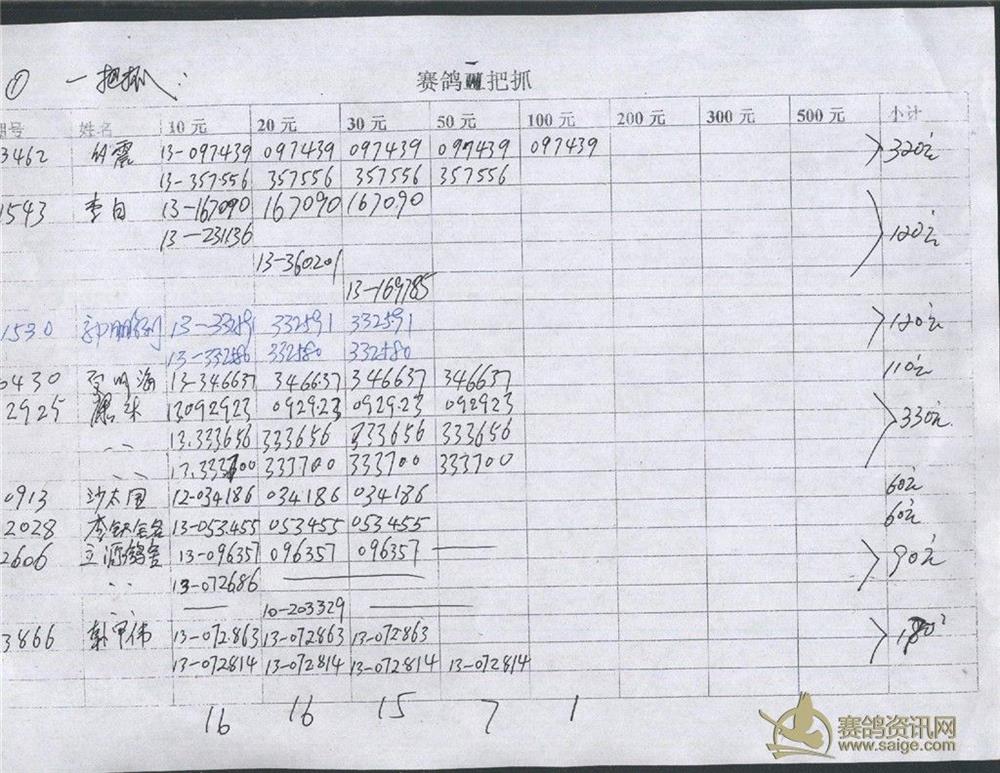 ① 一把抓:
赛鸽 把抓
棚号 姓名 10元 20元 30元 50元 100元 200元 300元 500元 小计
3462 震 13-097439 097439 097439 097439 097439 320元
13-357556 357556 357556 357556
1543 李自 13-167090 167090 167090 120元
13-231136
13-360201
13-169785
1530 13-332591 332591 332591 120元
13-332580 332580 332580
0430 海 13-346637 346637 346637 346637 110元
2925 13092923 092923 092923 092923 330元
13.333656 333656 333656 333656
13.333700 333700 333700 333700
0913 沙太国 12-034186 034186 034186 60元
2028 李 13-053455 053455 053455 60元
2606 立源鸽舍 13-096357 096357 096357 90元
13-072686
10-203329
3866 伟 13-072863 13-072863 13-072863 180元
13-072814 13-072814 13-072814 13-072814
16 16 15 7 1
赛鸽资讯网
www.saige.com